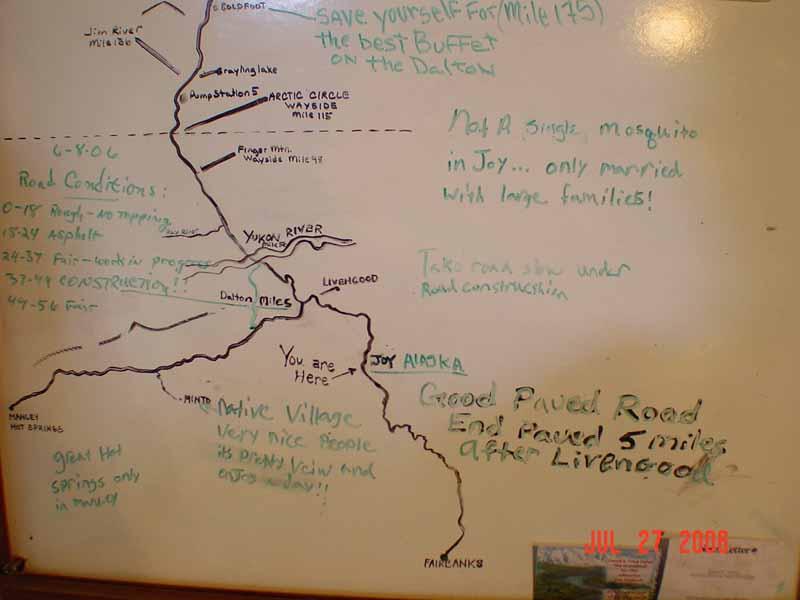 COLDFOOT
SAVE yourself For (Mile 175)
the best Buffet
on the Dalton
Jim River
Mile 136
Grayling Lake
Pump Station 5
ARCTIC CIRCLE
WAYSIDE
Mile 115
Finger Mtn.
Wayside Mile 98
Not A Single Mosquito
in Joy... only married
with large families!
6-8-06
Road Conditions:
0-18 Rough - No topping
18-24 Asphalt
24-37 Fair - work in progress
37-49 CONSTRUCTION!!
49-56 Fair
YUKON RIVER
Dalton Miles
LIVENGOOD
Take road slow under
Road construction
You are
Here
JOY ALASKA
Good Paved Road
End Paved 5 miles
after Livengood
MINTO
Native Village
Very nice People
its Pretty View and
enjoy a day!!
MANLEY
HOT SPRINGS
great Hot
springs only
in
FAIRBANKS
JUL 27 2008